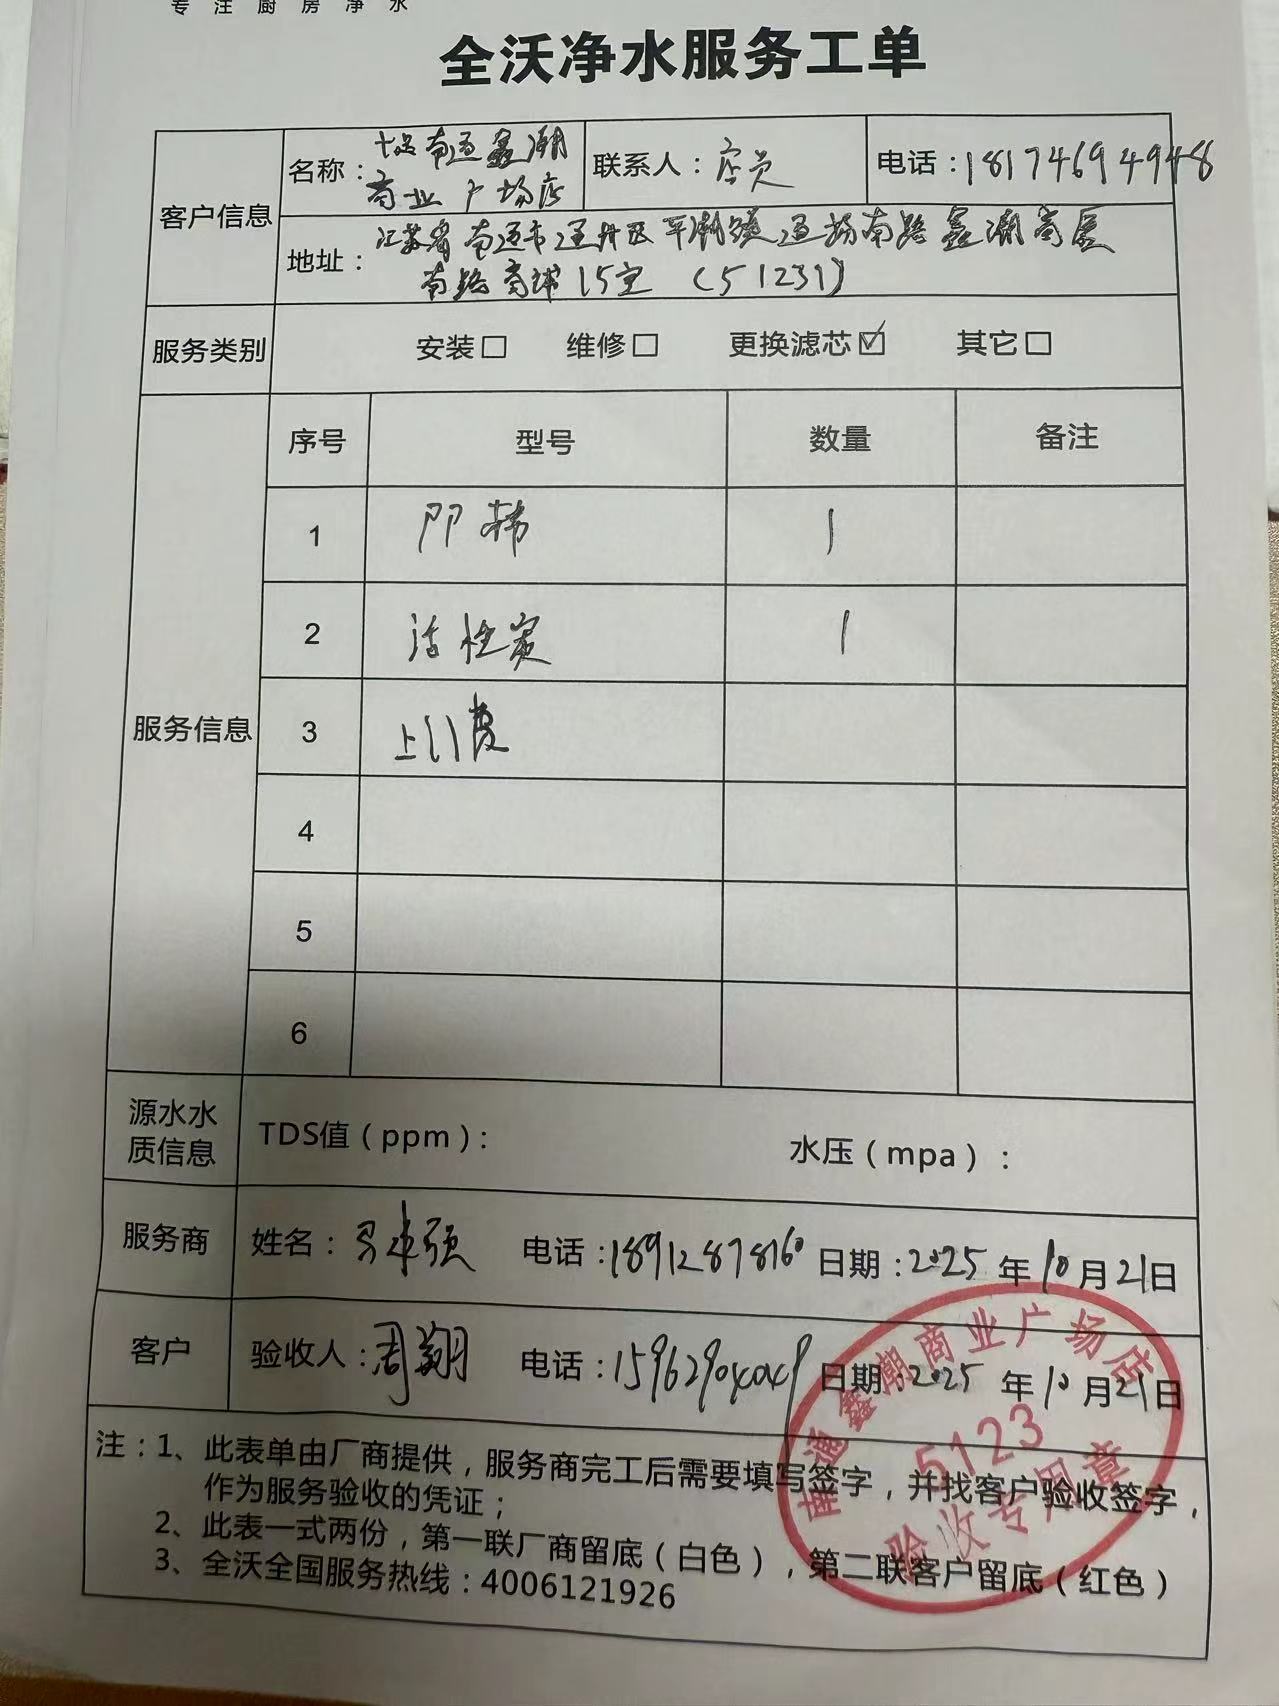 专注厨房净水
全沃净水服务工单
客户信息
名称：南通鑫潮
商业广场店
联系人：店员
电话：18174694948
地址：江苏省南通市通州区平潮镇通扬南路鑫潮商厦
南路商铺15室（51231）
服务类别
安装□ 维修□ 更换滤芯☑ 其它□
服务信息
序号 型号 数量 备注
1 PP棉 1
2 活性炭 1
3 上门费
4
5
6
源水水
质信息
TDS值（ppm）： 水压（mpa）：
服务商 姓名： 电话：18912878160 日期：2025年10月21日
客户 验收人：周翔 电话：15962904049 日期：2025年10月21日
南通鑫潮商业广场店
5123
验收专用章
注：1、此表单由厂商提供，服务商完工后需要填写签字，并找客户验收签字，
作为服务验收的凭证；
2、此表一式两份，第一联厂商留底（白色），第二联客户留底（红色）
3、全沃全国服务热线：4006121926